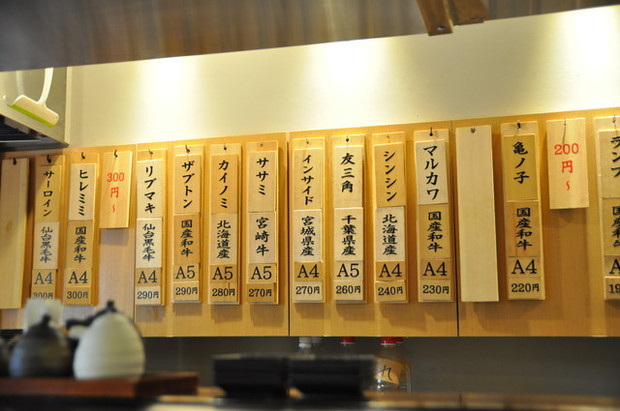 サーロイン 仙台黒毛牛 A4 300円
ヒレミミ 国産和牛 A4 300円
300円〜
リブマキ 仙台黒毛牛 A4 290円
ザブトン 国産和牛 A5 290円
カイノミ 北海道産 A5 280円
ササミ 宮崎牛 A5 270円
インサイド 宮城県産 A4 270円
友三角 千葉県産 A5 260円
シンシン 北海道産 A4 240円
マルカワ 国産和牛 A4 230円
亀ノ子 国産和牛 A4 220円
200円〜
国産和牛 A4